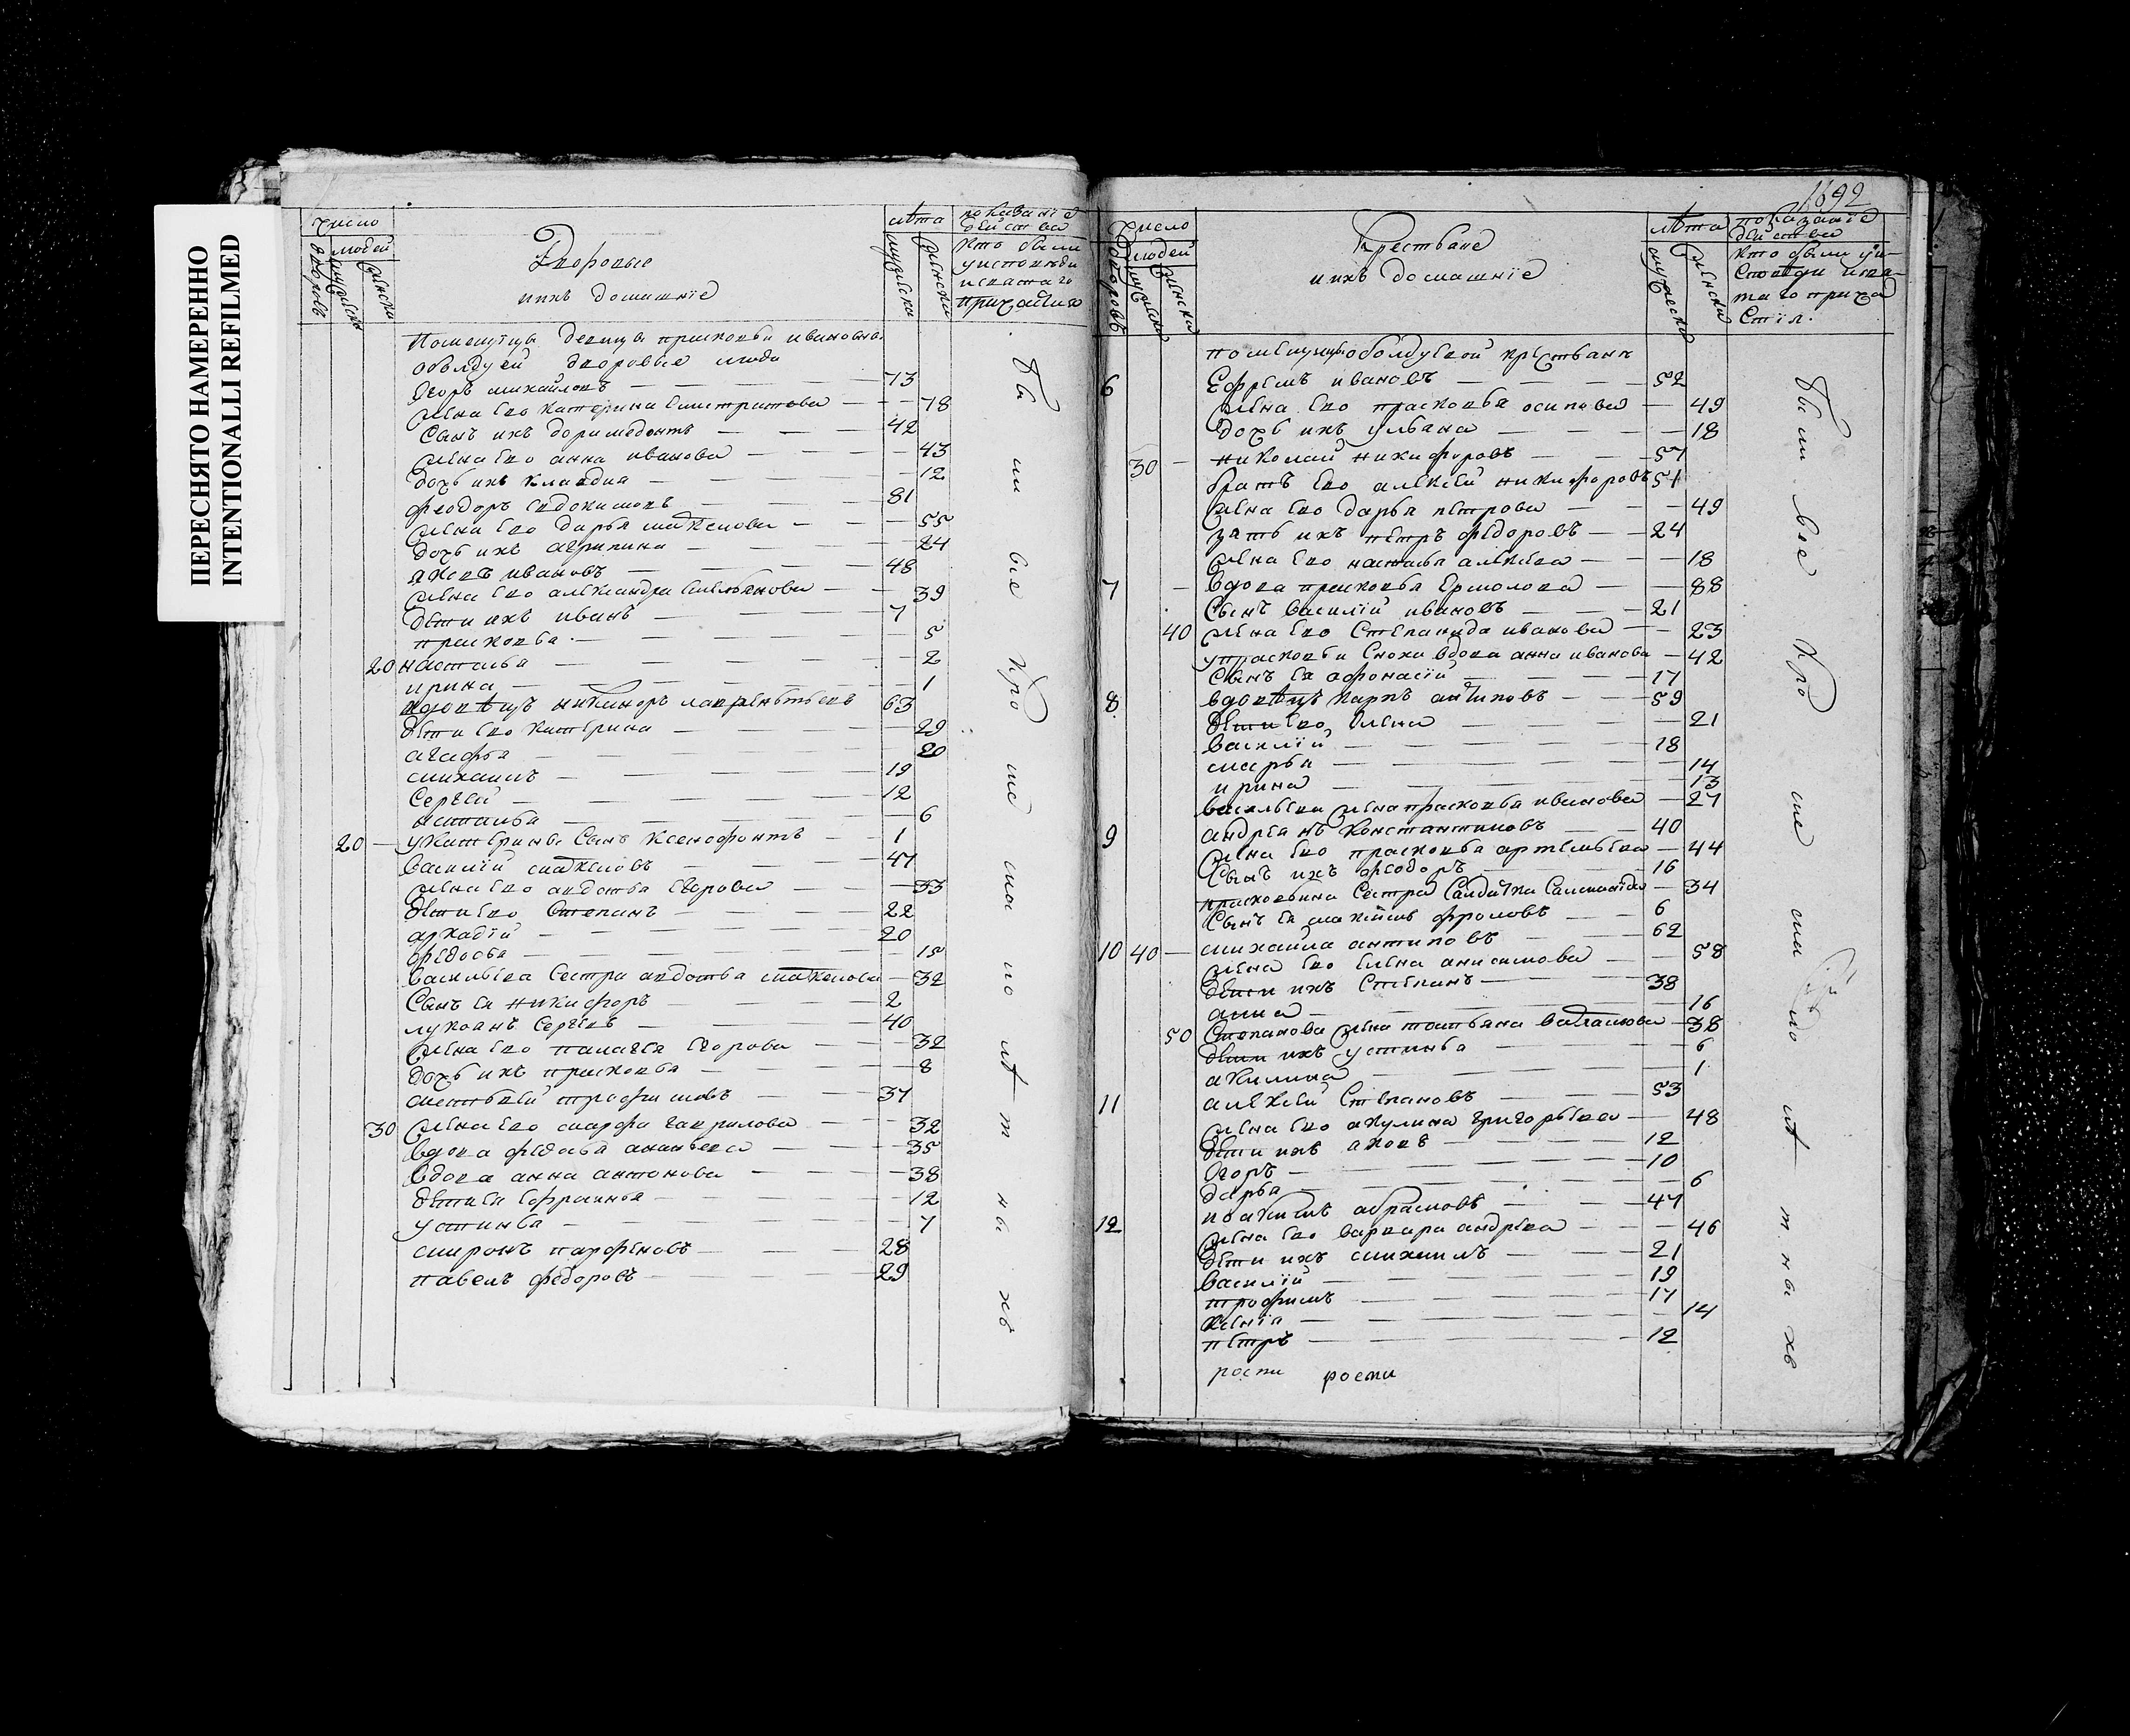 ПЕРЕСНЯТО НАМЕРЕННО
INTENTIONALLI REFILMED
число
людей
дворовъ
мужеска
женска
Дворовые
ихъ домашніе
лѣта
мужеска
женска
показаніе
действа
кто были
у исповеди
и святаго
причастия
помещицы девицы прасковьи ивановны
дворовые люди
Егоръ михайловъ 73
жена ево катерина 78
Сынъ ихъ доримедонтъ 42
жена ево анна иванова 43
дочь ихъ клавдия 12
феодоръ евдокимовъ 81
жена ево дарья маѯимова 55
дочь ихъ агрипина 24
яковъ ивановъ 48
жена ево александра емельянова 39
дети ихъ иванъ 7
прасковья 5
20 настасья 2
ирина 1
вдовѣцъ никаноръ лаврентьевъ 63
дети ево катерина 29
агафья 20
михаилъ 19
Сергей 12
наталья 6
20 у катерины сынъ ксенофонтъ 1
василий маѯимовъ 47
жена ево авдотья егорова 33
дети ево Степанъ 22
аркадій 20
федосья 15
васильева сестра авдотья маѯимова 32
Сынъ ея никифоръ 2
лукоанъ сергеевъ 40
жена ево палагея егорова 32
дочь ихъ прасковья 8
матвей трофимовъ 37
30 жена ево марфа гаврилова 32
вдова федосья ананьева 35
вдова анна антонова 38
дети ея ефросинья 12
устинья 7
миронъ парфеновъ 28
павелъ федоровъ 29
были все кроме малолѣтныхъ
1692
число
людей
дворовъ
мужеска
женска
Крестьяне
ихъ домашніе
лѣта
мужеска
женска
показаніе
действа
кто были у ис-
поведи и свя-
таго прича
стія.
помещицы оболдуевой крестьяне
6 Ефремъ ивановъ 52
жена ево прасковья осипова 49
дочь ихъ ульяна 18
30 николай никифоровъ 57
братъ ево алексей никифоровъ 51
жена ево дарья петрова 49
зять ихъ петръ федоровъ 24
жена ево настасья алексеева 18
7 вдова прасковья ермолова 88
Сынъ василій ивановъ 21
40 жена ево степанида иванова 23
у прасковьи сноха вдова анна иванова 42
Сынъ ея афонасій 17
8 вдовѣцъ карпъ антиповъ 59
дети ево елена 21
василій 18
марья 14
ирина 13
васильева жена прасковья иванова 27
9 андреянъ константиновъ 40
жена ево прасковья артемьева 44
Сынъ ихъ феодоръ 16
прасковьина сестра салдатка саломанида 34
Сынъ ея маѯимъ фроловъ 6
10 40 михаила антиповъ 62
жена ево елена анисимова 58
дети ихъ Степанъ 38
анна 16
50 Степанова жена татьяна 38
дети ихъ устинья 6
акилина 1
11 алексей Степановъ 53
жена ево акулина григорьева 48
дети ихъ яковъ 12
Егоръ 10
дарья 6
12 иоакимъ абрамовъ 47
жена ево варвара андреева 46
дети ихъ михаилъ 21
василій 19
трофимъ 17
ксенія 14
петръ 12
роспи роспи
были все кроме малолѣтныхъ